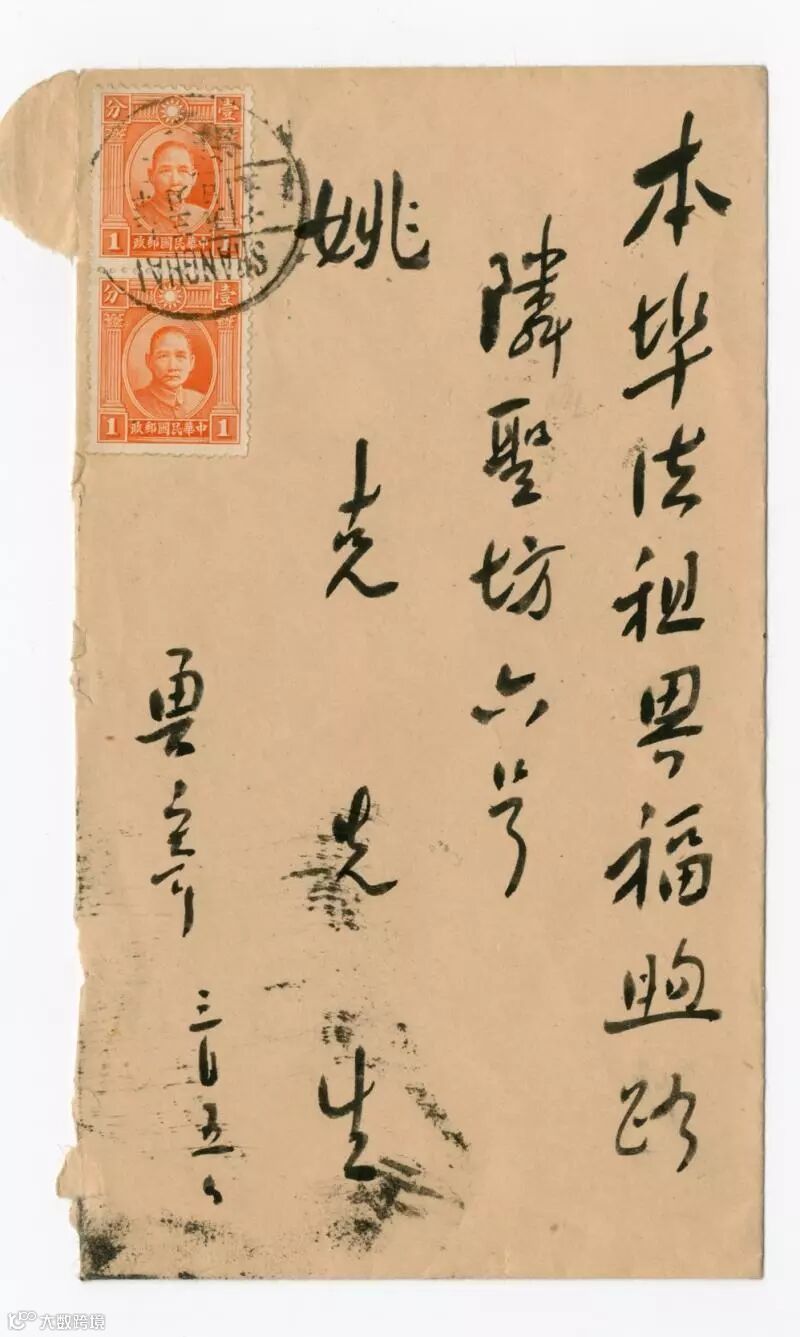 本埠法租界福煦路
隣聖坊六号
姚克先生
寄 三月五日
壹分
1 中華民國郵政 1
SHANGHAI
壹分
1 中華民國郵政 1
大数跨境